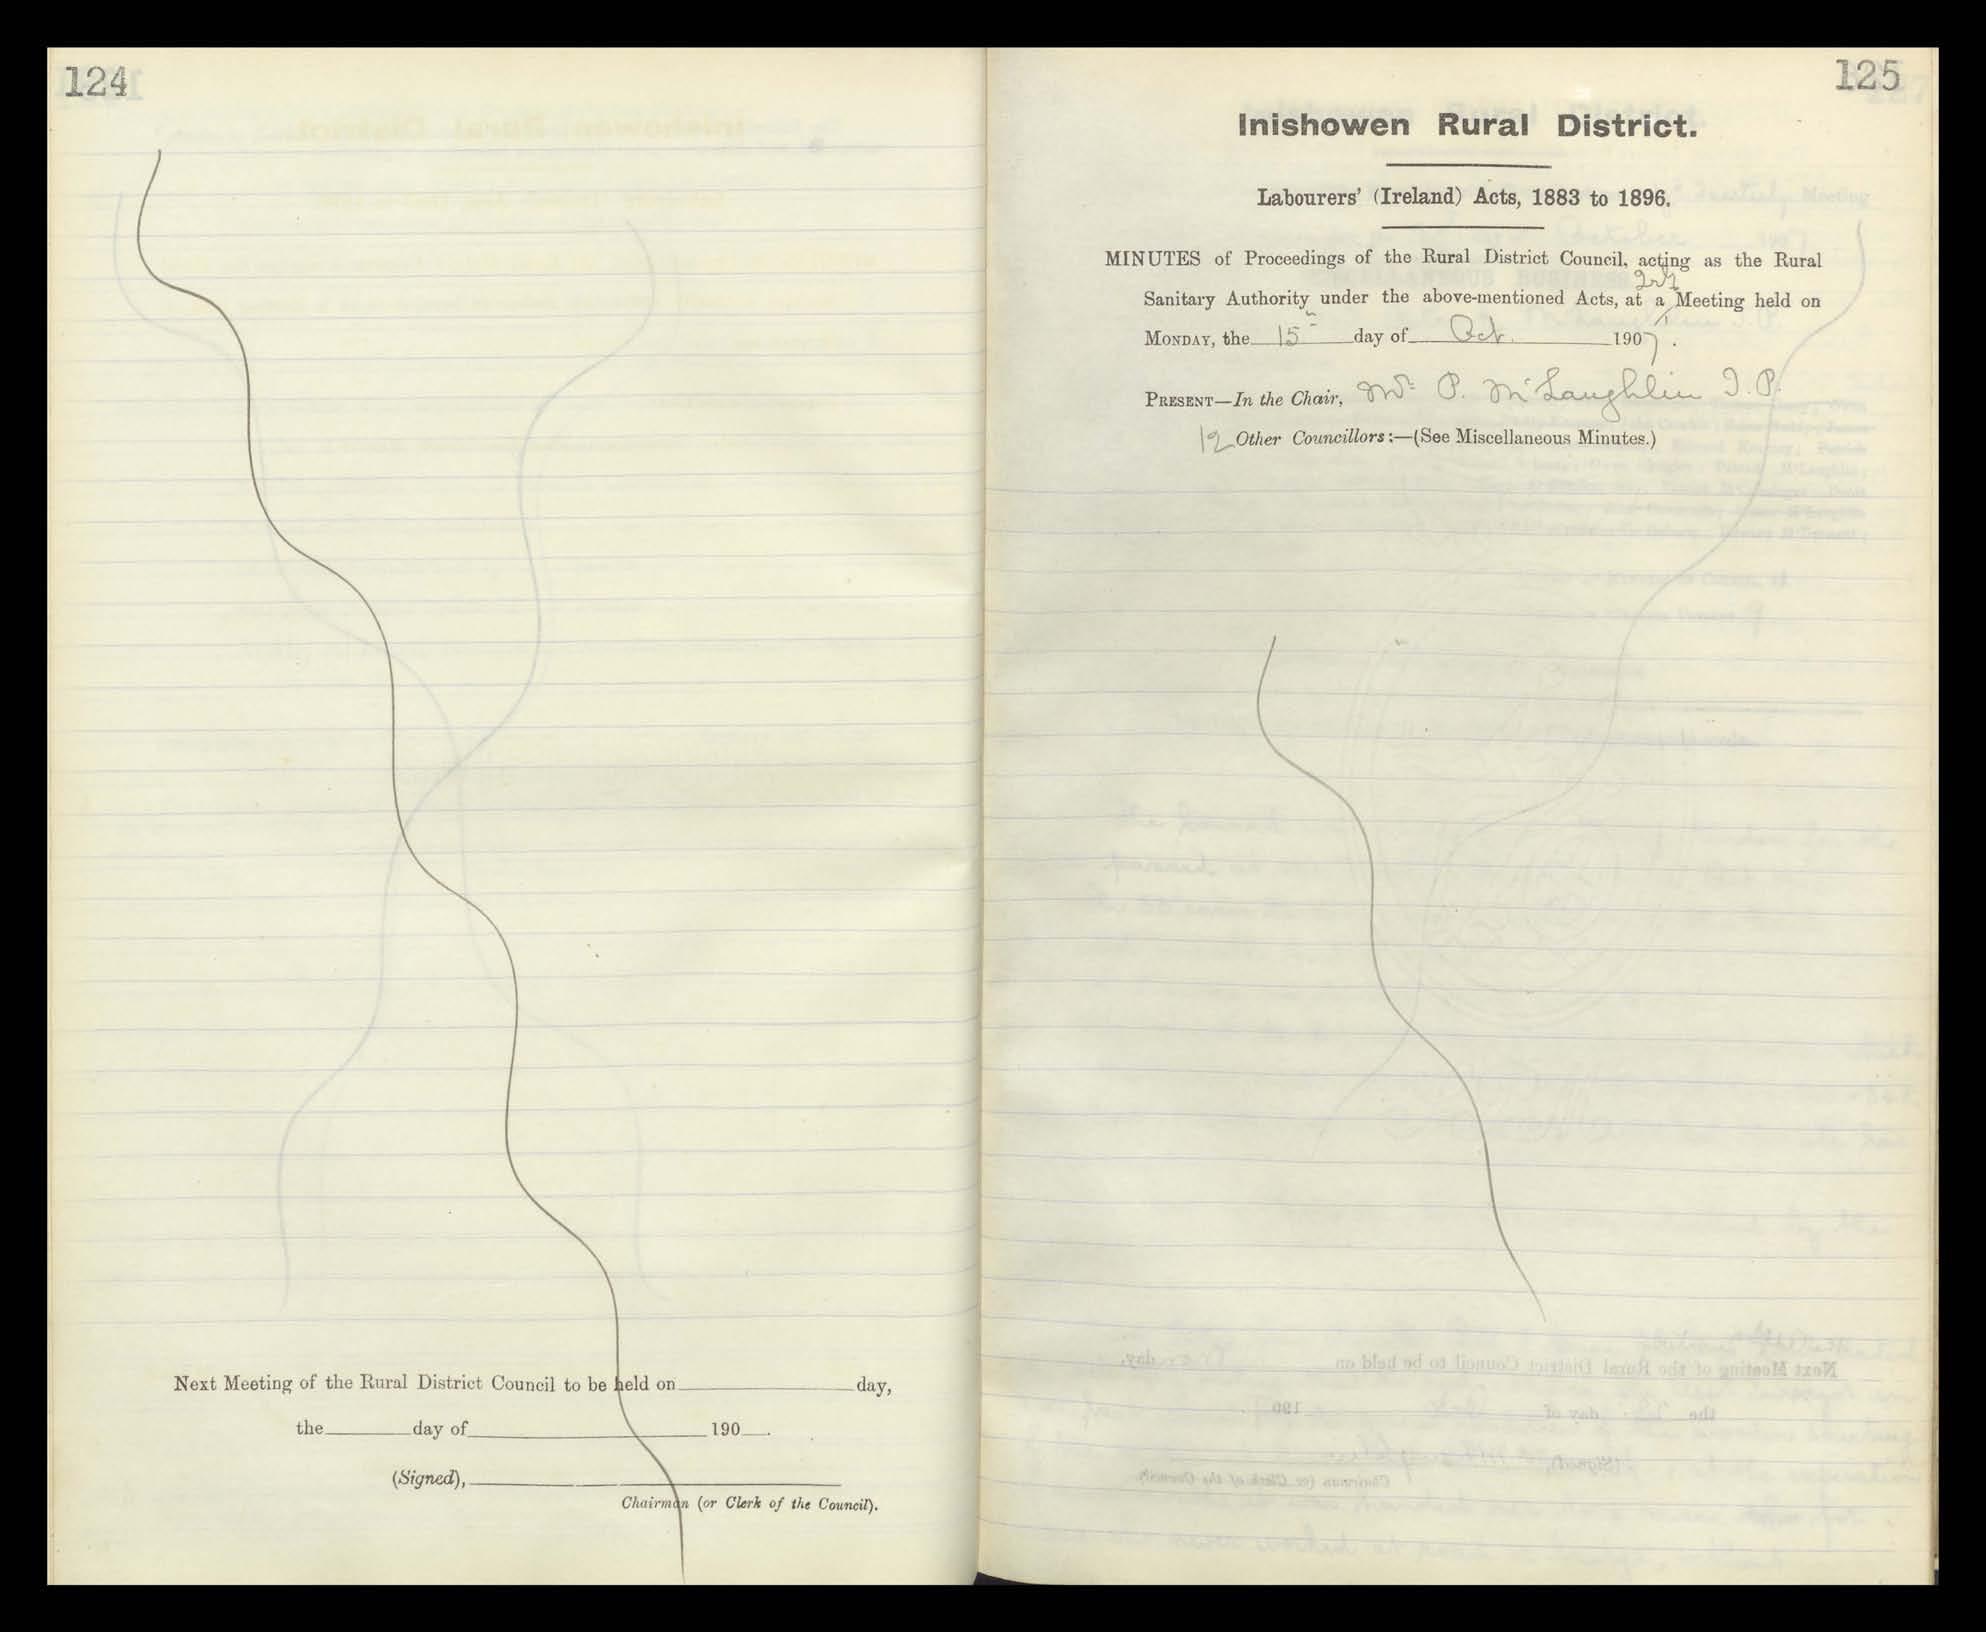 124
Next Meeting of the Rural District Council to be held on day,
the day of 190 .
(Signed),
Chairman (or Clerk of the Council).
125
Inishowen Rural District.
Labourers' (Ireland) Acts, 1883 to 1896.
MINUTES of Proceedings of the Rural District Council, acting as the Rural
Sanitary Authority under the above-mentioned Acts, at a Meeting held on
MONDAY, the 15th day of Oct. 1907.
PRESENT—In the Chair, Mr. P. McLaughlin J.P.
12 Other Councillors:—(See Miscellaneous Minutes.)